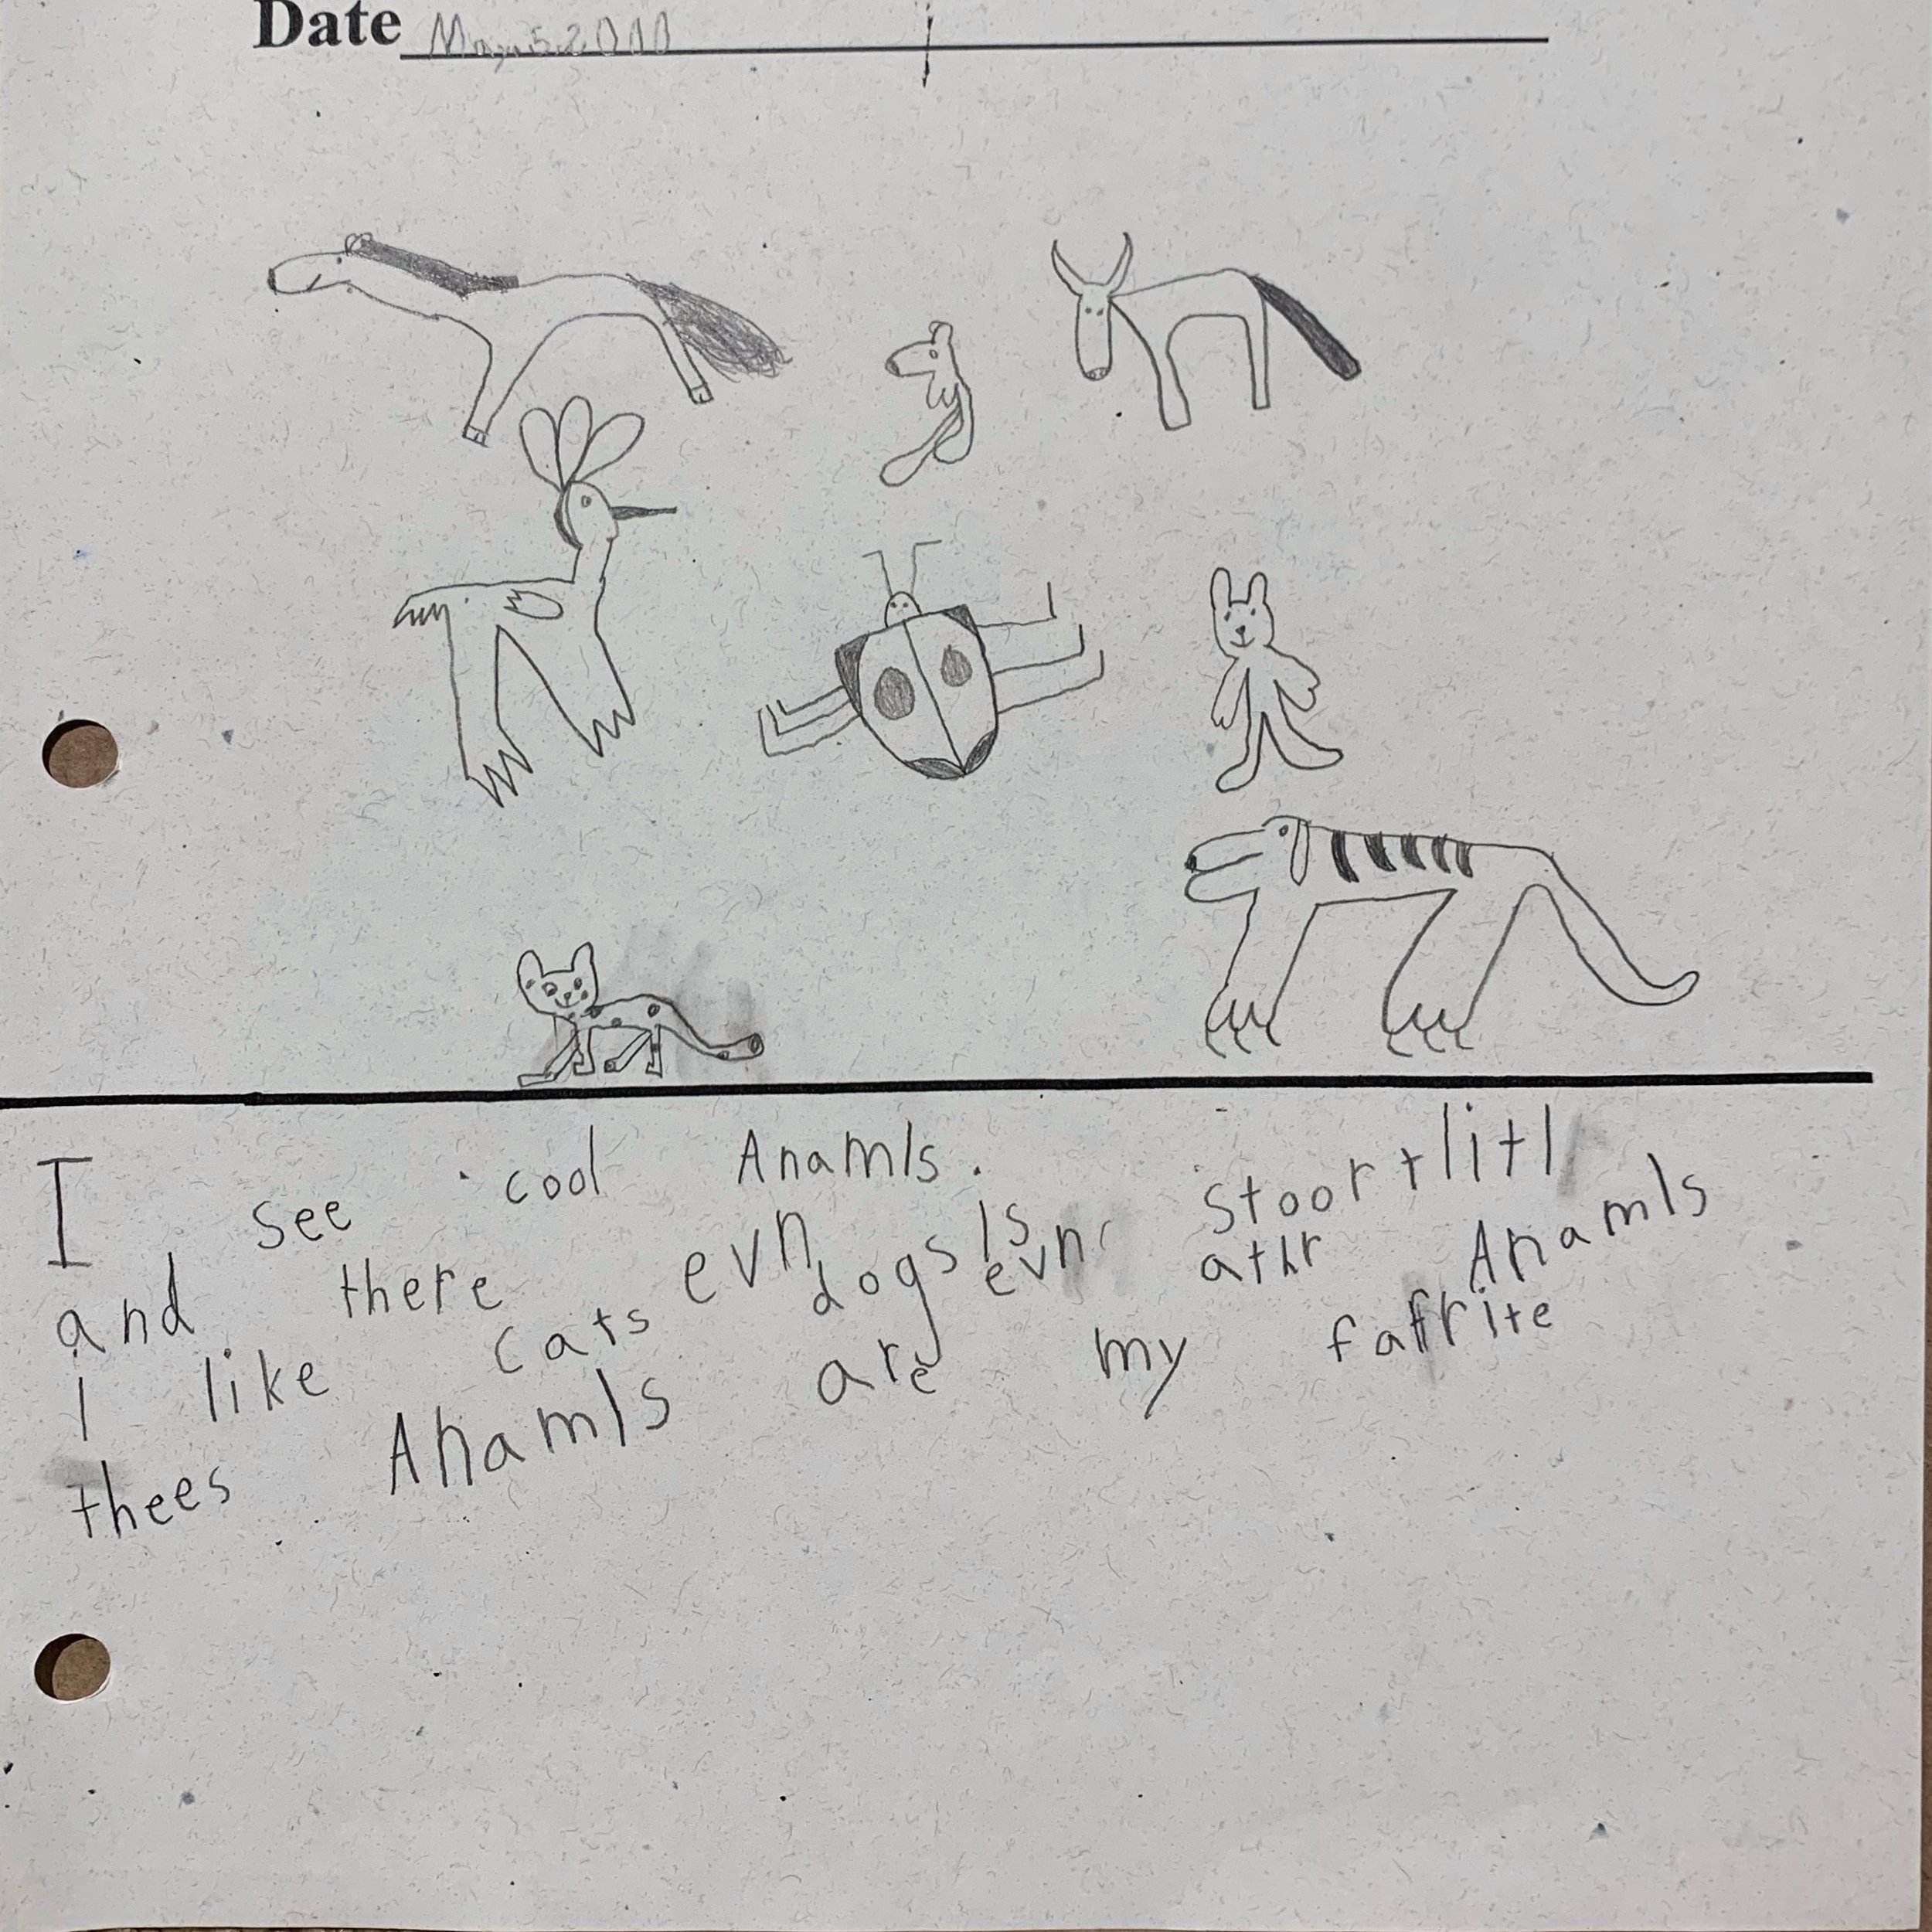 Date May 5, 2010
I see cool Anamls.
and there evn Is Stoort litl
i like cats dogs evn athr Anamls
thees Anamls are my fafrite